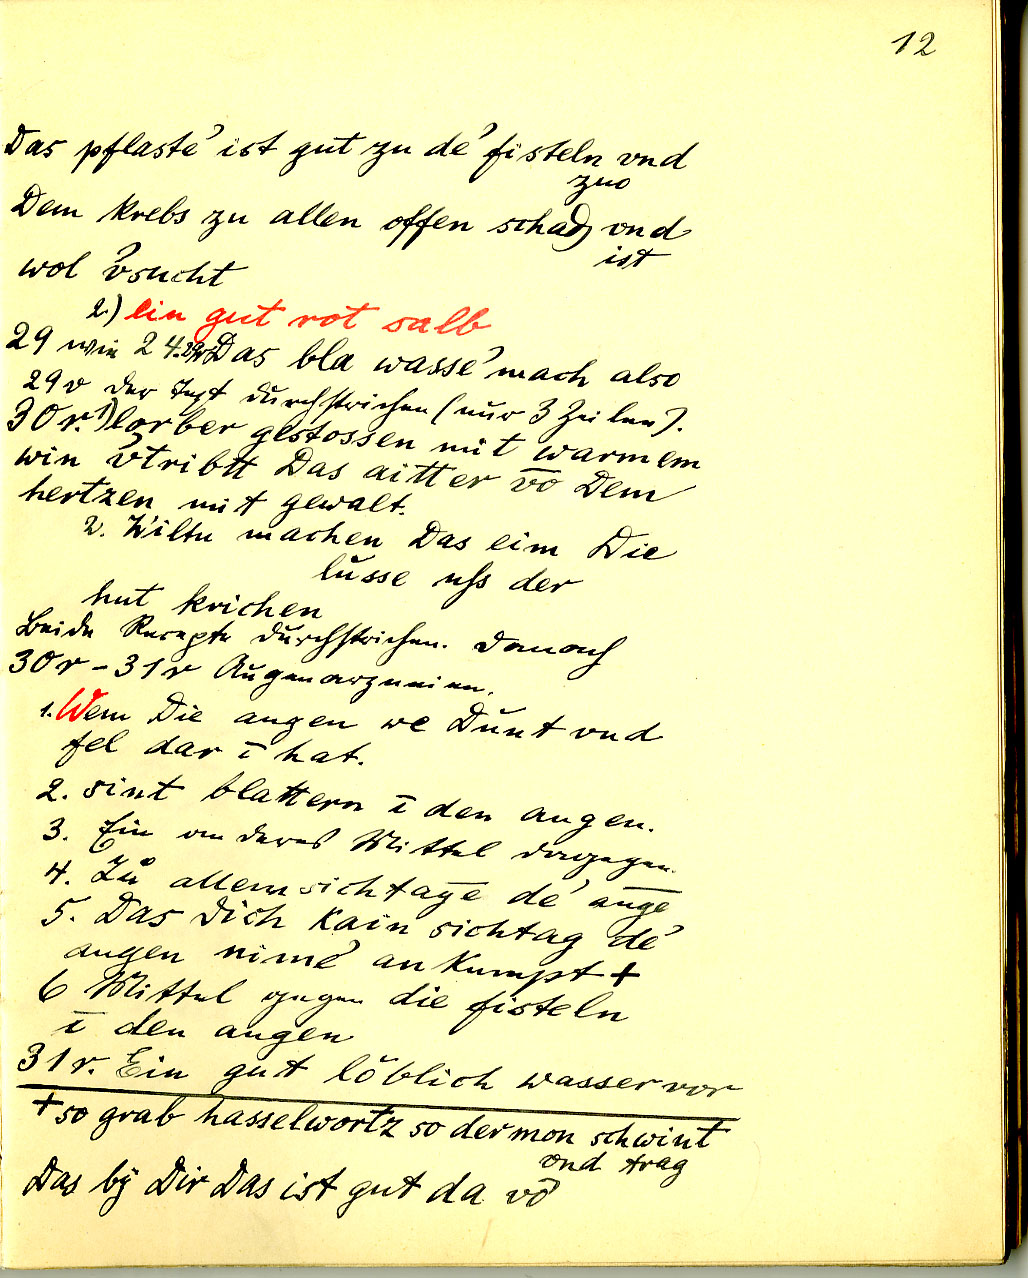 12
Das pflaste' ist gut zu de' fisteln vnd
zuo
Dem krebs zu allen offen schad vnd
ist
wol v'sucht
2.) Ein gut rot salb
29 wie 24. Das bla wasse' mach also
29v der Text durchstrichen (nur 3 Zeilen).
30r. 1) lorber gestossen mit warmem
win v'tribtt Das aitter vō Dem
hertzen mit gewalt.
2. Wiltu machen Das eim Die
lüsse uss der
hut krichen
Beide Rezepte durchstrichen. Danach
30r-31r Augenarzneien.
1. Wem Die augen we Dunt vnd
fel dar ī hat.
2. sint blattern ī den augen.
3. Ein anderes Mittel dagegen.
4. Zů allem sichtage de' auge
5. Das Dich kain sichtag de'
augen nime' an kumpt +
6 Mittel gegen die fisteln
ī den augen
31r. Ein gut löblich wasser vor
+ so grab hasselwortz so der mon schwint
vnd trag
Das bÿ Dir Das ist gut da vō